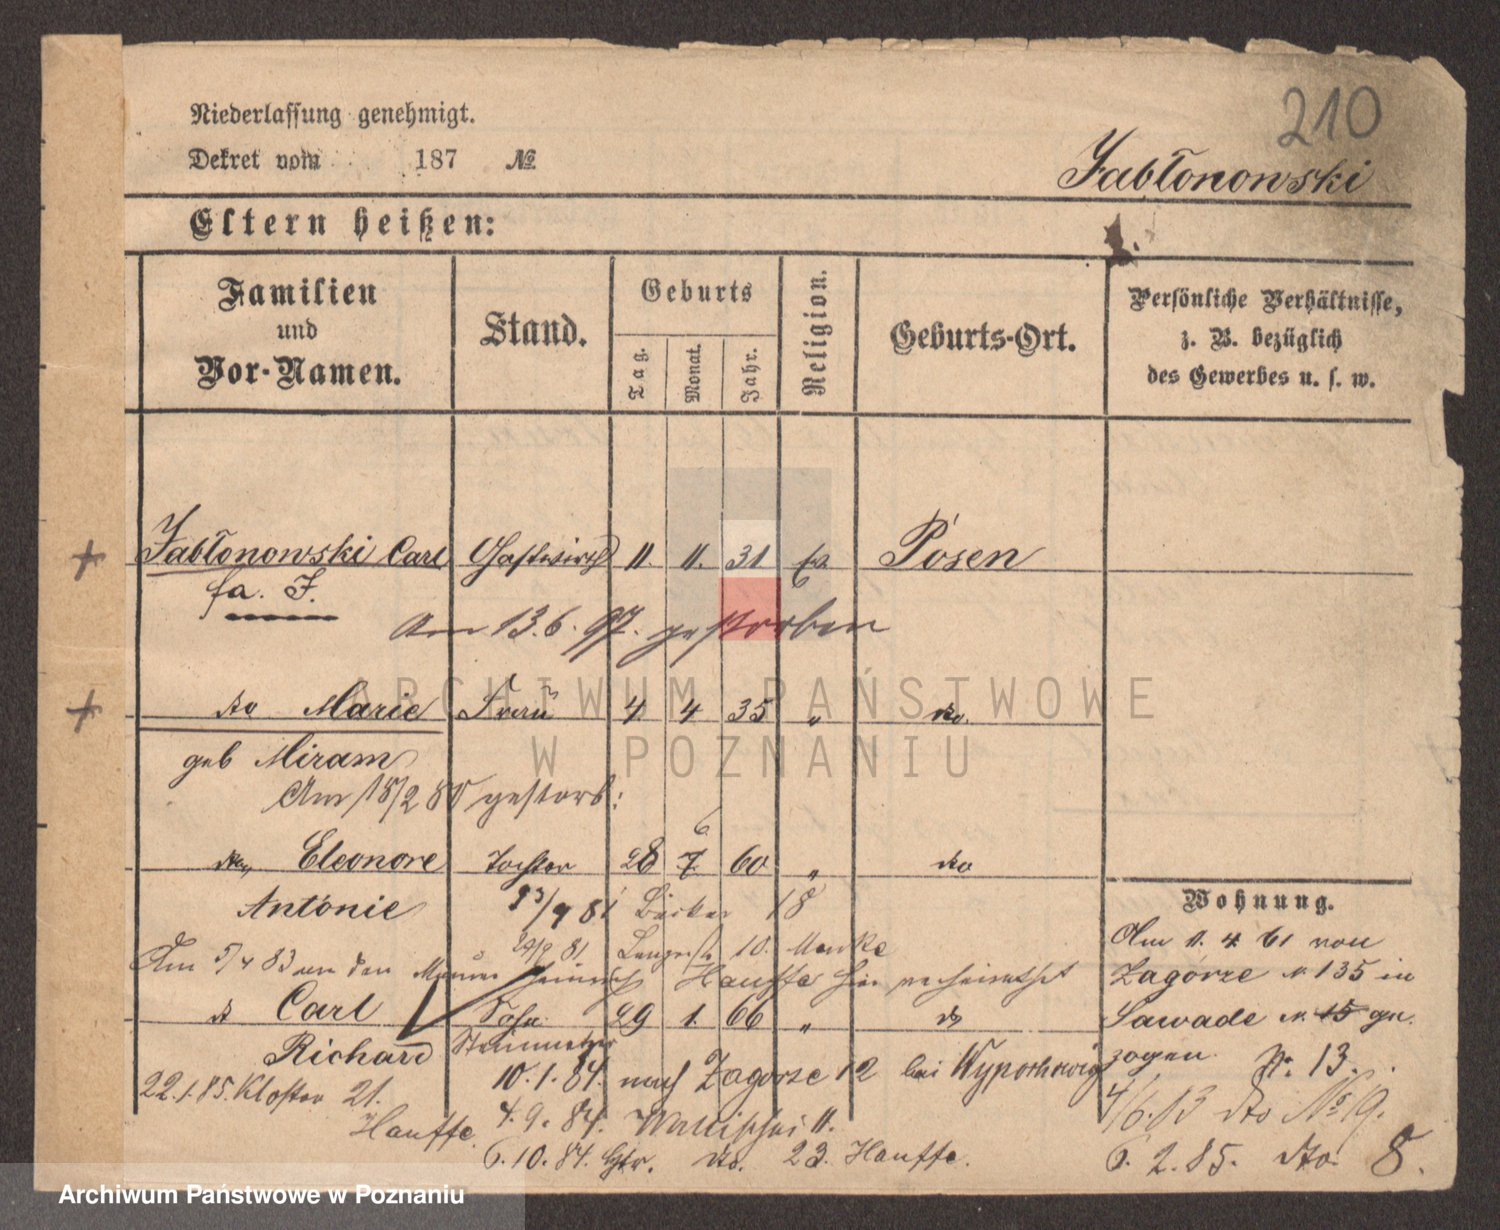 210
Niederlassung genehmigt.
Dekret vom 187 №
Jabłonowski
Eltern heißen:
Familien und Vor-Namen.
Stand.
Geburts
Tag.
Monat.
Jahr.
Religion.
Geburts-Ort.
Persönliche Verhältnisse,
z. B. bezüglich
des Gewerbes u. s. w.
+ Jabłonowski Carl Gastwirth 11. 11. 31 ev. Posen
fa. J.
Am 13.6.97. gestorben
+ do Marie Frau 4. 4 35 " do.
geb Miram
Am 18/2 80 gestorb:
6.
Eleonore Tochter 28 7 60 " do
Antonie 23/9 81 Bäcker 18
Wohnung.
29/9 81 10. Manke
Am 5/4 83 an den Maurer Heinrich Hauffe hier verheirathet
Am 11. 4 61 von
Zagórze N. 135 in
Carl Sohn 29 1. 66 " do
Sawade N. 15 ge-
Richard Steinmetz
zogen. N. 13.
10.1.84. nach Zagorze 12 bei
22.1.85. Kloster 21.
Hauffe.
4/6.73 do No 9.
4.9.84. Wallischei 11.
6.10.84. do. 23. Hauffe.
6.2.85. do. 8.
ARCHIWUM PAŃSTWOWE
W POZNANIU
Archiwum Państwowe w Poznaniu